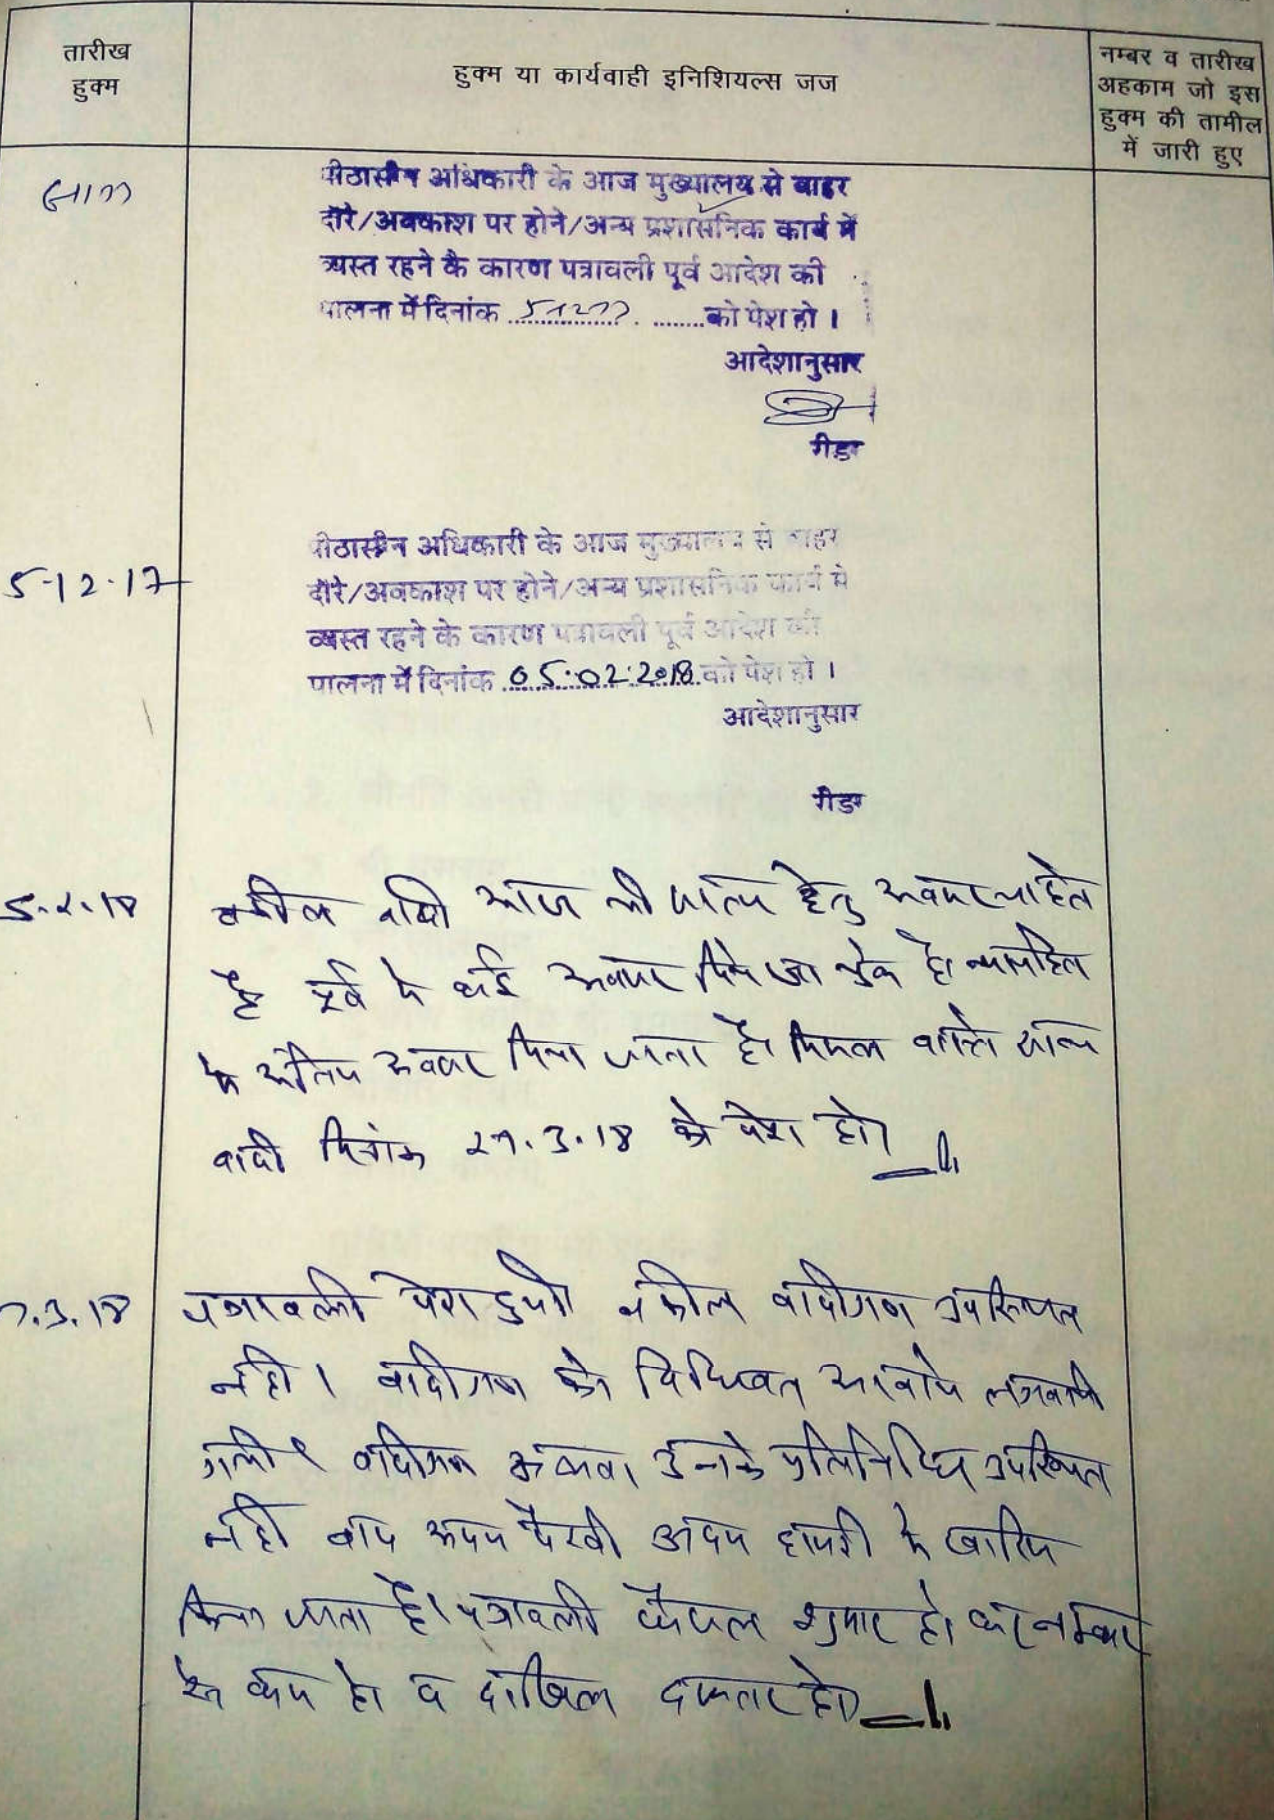 तारीख
हुक्म
हुक्म या कार्यवाही इनिशियल्स जज
नम्बर व तारीख
अहकाम जो इस
हुक्म की तामील
में जारी हुए
पीठासीन अधिकारी के आज मुख्यालय से बाहर
दौरे/अवकाश पर होने/अन्य प्रशासनिक कार्य में
व्यस्त रहने के कारण पत्रावली पूर्व आदेश की
पालना में दिनांक 5-12-17 को पेश हो ।
आदेशानुसार
रीडर
पीठासीन अधिकारी के आज मुख्यालय से बाहर
5-12-17
दौरे/अवकाश पर होने/अन्य प्रशासनिक कार्य में
व्यस्त रहने के कारण पत्रावली पूर्व आदेश की
पालना में दिनांक 05.02.2018 को पेश हो ।
आदेशानुसार
रीडर
5-2-18
वकील वादी आज की साक्ष्य हेतु अवसर चाहते
है पूर्व में कई अवसर दिये जा चुके है। न्यायहित
में अंतिम अवसर दिया जाता है। मिसल वास्ते साक्ष्य
वादी दिनांक 27.3.18 को पेश हो।
7.3.18
पत्रावली पेश हुयी वकील वादीगण उपस्थित
नही । वादीगण को विधिवत आवाजे लगवायी
गयी। वादीगण अथवा उनके प्रतिनिधि उपस्थित
नही वाद अदम पैरवी अदम हाजरी में खारिज
किया जाता है। पत्रावली फैसल शुमार हो कर नम्बर
से कम हो व दाखिल दफ्तर हो।